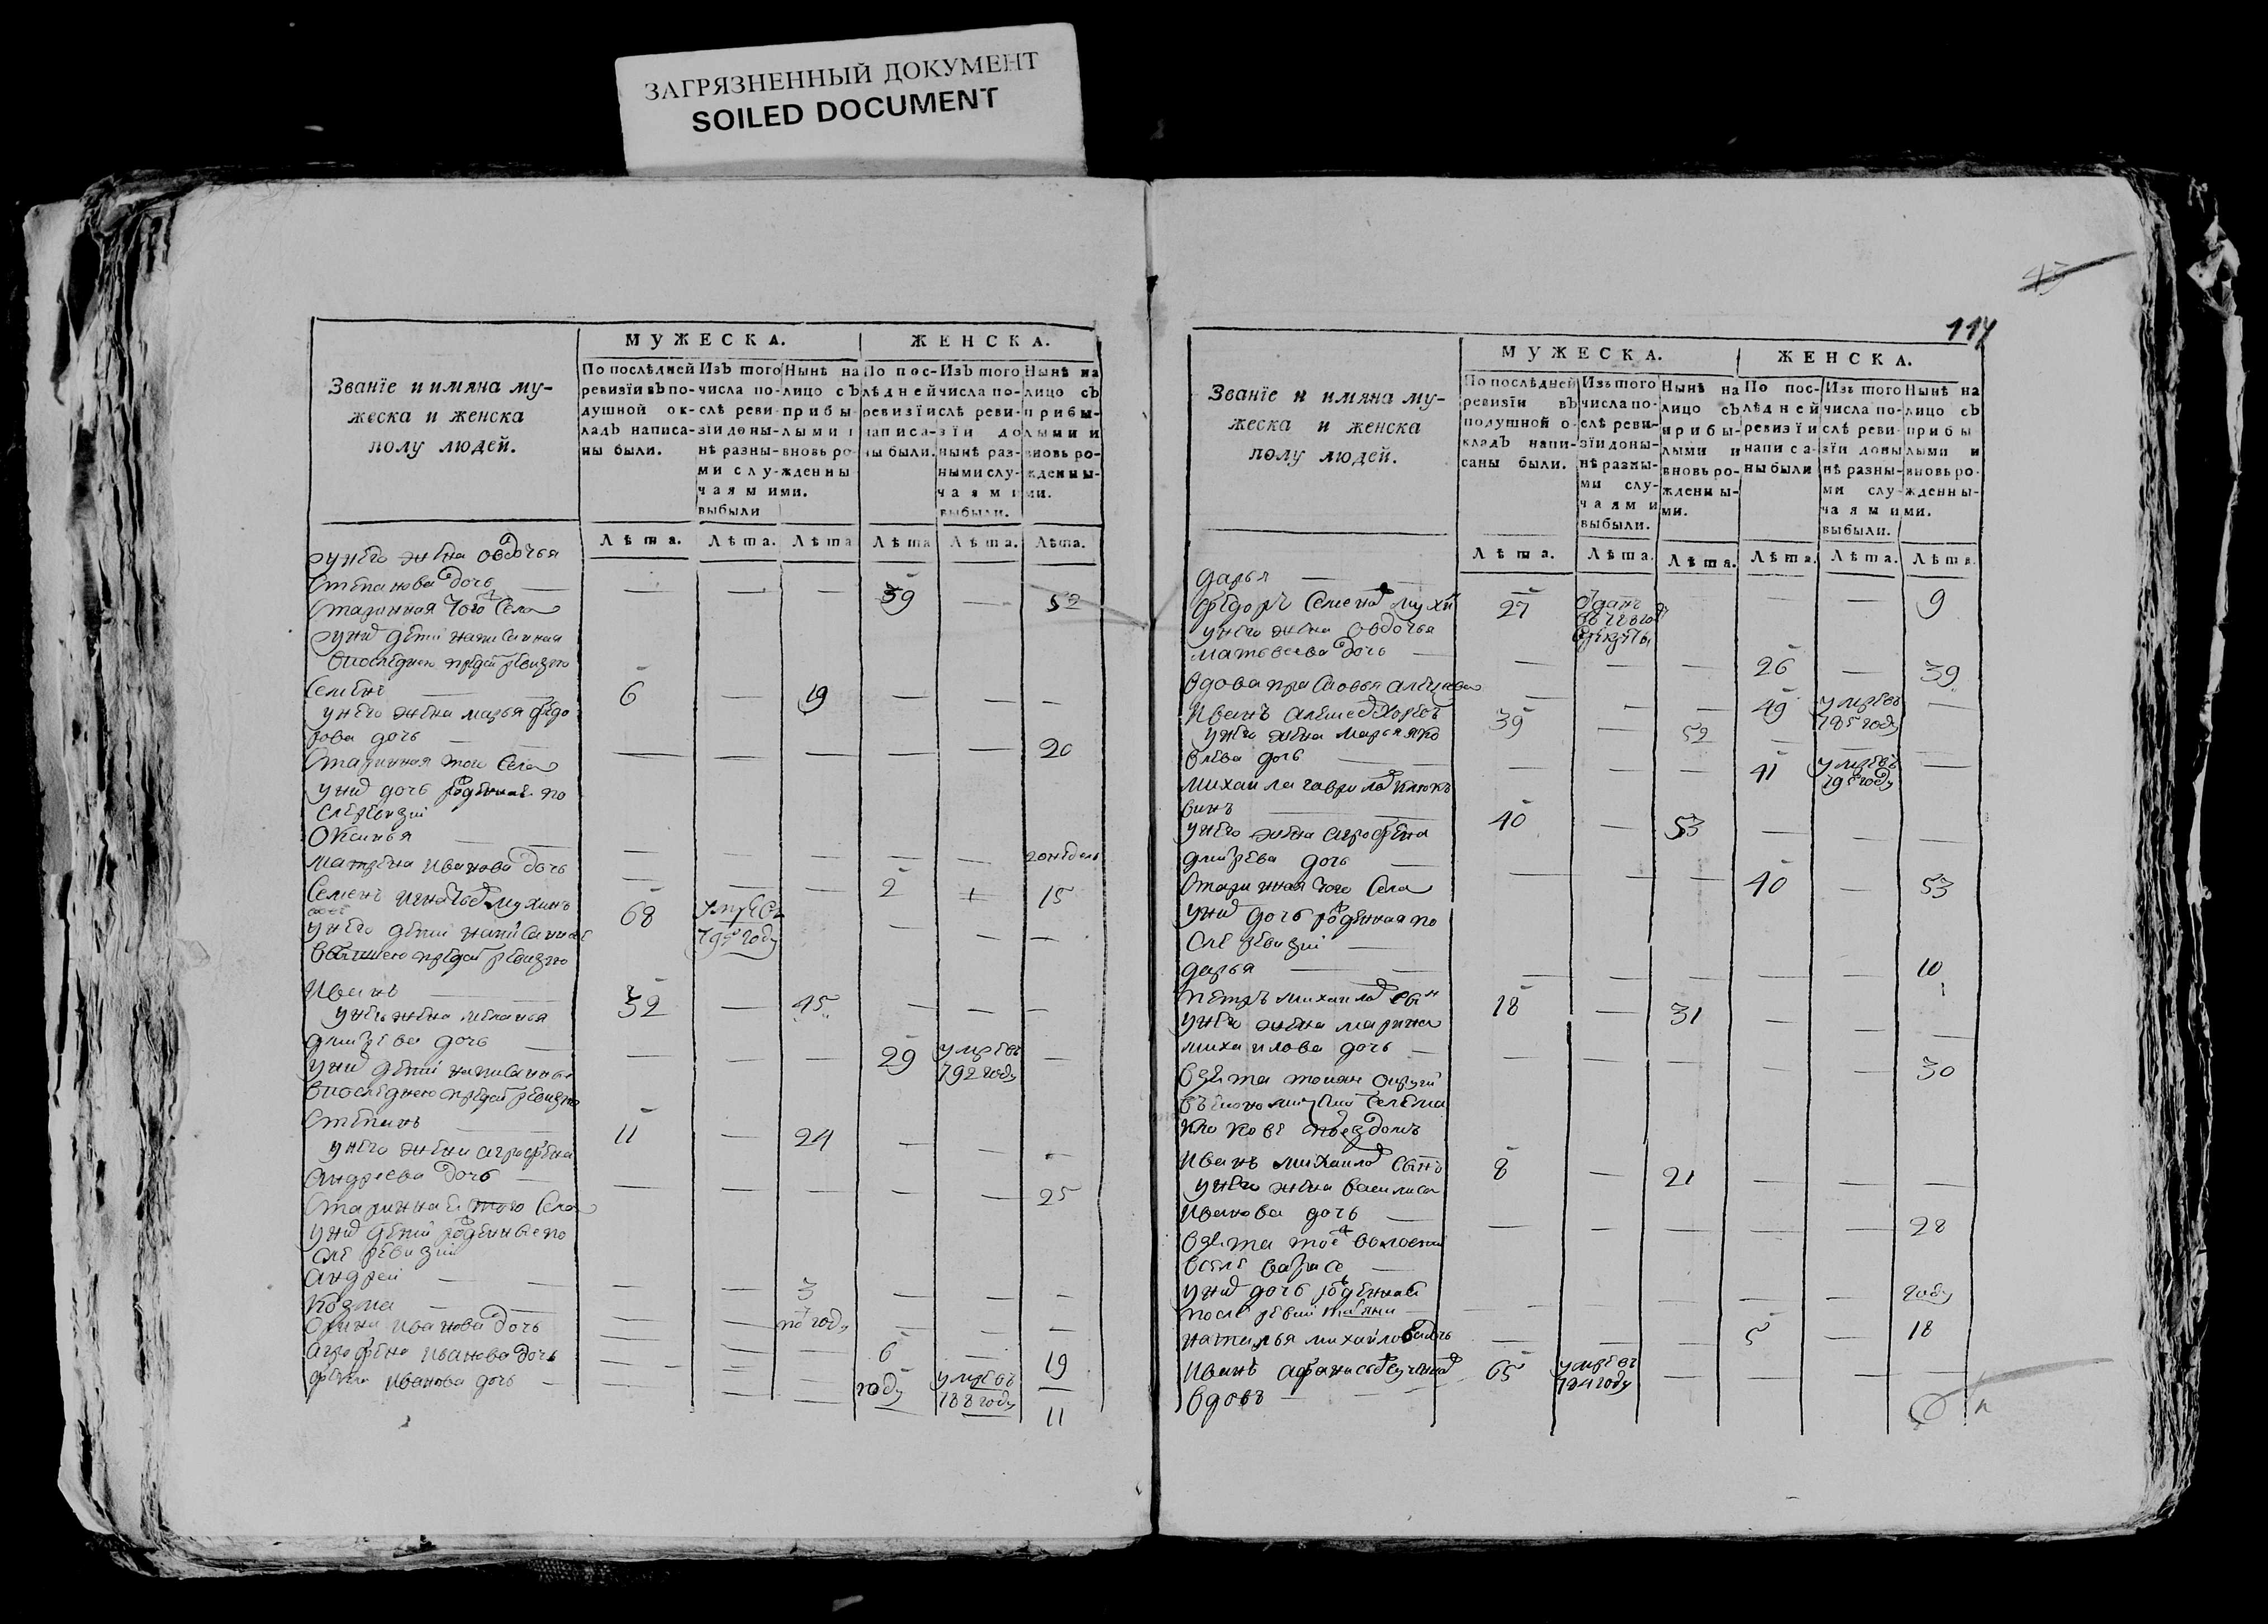 ЗАГРЯЗНЕННЫЙ ДОКУМЕНТ
SOILED DOCUMENT
Званїе и имяна му-
жеска и женска
полу людей.
МУЖЕСКА.
ЖЕНСКА.
По послѣдней
ревизїи въ по-
душной ок-
ладъ написа-
ны были.
Изъ того
числа по-
слѣ реви-
зїи доны-
нѣ разны-
ми слу-
чаями
выбыли
Нынѣ на
лицо съ
прибы-
лыми и
вновь ро-
жденны
ми.
По пос-
лѣдней
ревизїи
написа-
ны были.
Изъ того
числа по-
слѣ реви-
зїи до
нынѣ раз-
ными слу-
чаями
выбыли.
Нынѣ на
лицо съ
прибы-
лыми и
вновь ро-
жденны-
ми.
Лѣта. Лѣта. Лѣта Лѣта Лѣта. Лѣта.
у него жена овдотья
Степанова дочь — — — 39 — 52
Старинная того Села
у них дети написанная
в последнею пред сего ревизию
Семенъ 6 — 19 — — —
у него жена марья федо
рова дочь — — — — — 20
Старинная того Села
у них дочь рожденная по
сле ревизии
Оксинья — — — — — 20 недель
матрена Иванова дочь — — — 2 — 15
Семенъ мухинъ 68 умре въ 795 году — —
у него дети написанные
пред сего ревизию
Иванъ 32 — 45 — — —
у него жена меланья
дмитрева дочь — — — 29 умре въ 792 году —
у них дети написанные
в последнею пред сего ревизию
Степанъ 11 — 24 — — —
у него жена аграфена
Андреева дочь — — — — — 25
Старинная того Села
у них дети рожденные по
сле ревизии
Андрей — — 3 — — —
Козма — — пол году — — —
Орина Иванова дочь — — — 6 — 19
Аграфена Иванова дочь — — — году умре въ 788 году —
Иванова дочь — — — — — 11
43
117
Званїе и имяна му-
жеска и женска
полу людей.
МУЖЕСКА.
ЖЕНСКА.
По послѣдней
ревизїи въ
подушной о-
кладъ напи-
саны были.
Изъ того
числа по-
слѣ реви-
зїи доны-
нѣ разны-
ми слу-
чаями
выбыли.
Нынѣ на
лицо съ
прибы-
лыми и
вновь ро-
жденны-
ми.
По пос-
лѣдней
ревизїи
написа-
ны были
Изъ того
числа по-
слѣ реви-
зїи доны
нѣ разны-
ми слу-
чаями
выбыли.
Нынѣ на
лицо съ
прибы
лыми и
вновь ро-
жденны-
ми.
Лѣта. Лѣта. Лѣта. Лѣта. Лѣта. Лѣта.
дарья — — — — — 9
федоръ Семенов мухин 27 отданъ рекруты
у него жена Овдотья
матвеева дочь — — — 26 — 39
вдова прасковья — — — 49 умре въ 785 году —
Иванъ 39 — 52
у него жена марья яко
влева дочь — — — 41 умре въ —
михаила гаврилов
40 — 53 — — —
у него жена аграфена
дмитрева дочь — — — 40 — 53
Старинная того Села
у них дочь рожденная по
сле ревизии
дарья — — — — — 10
петръ михаилов сын 18 — 31 — — —
у него жена марина
михаилова дочь — — — — — 30
взята тояж округи
Иванъ михаилов сынъ 8 — 21 — — —
у него жена василиса
Иванова дочь — — — — — 28
взята той волости
в селе
у них дочь рожденная
после — — — — — году
наталья михайлова дочь — — — 5 — 18
Иванъ афанасьев 65 умре въ 784 году — — —
вдовъ